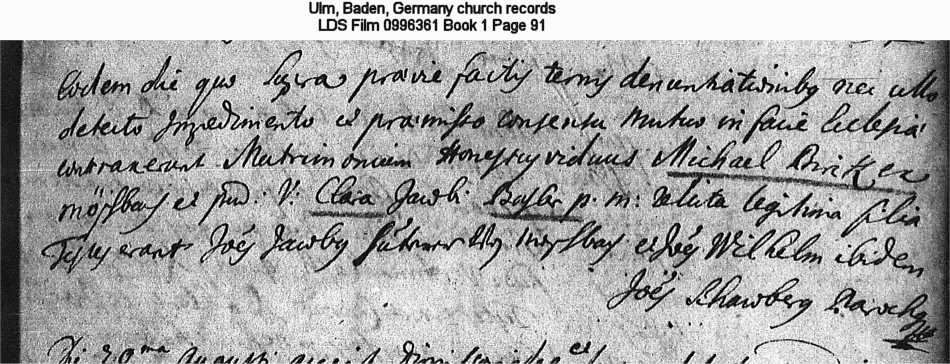 Ulm, Baden, Germany church records
LDS Film 0996361 Book 1 Page 91
Eodem die quo supra prævie factis ternis denuntiationibq nec ullo
detecto Impedimento et præmisso consensu mutuo in facie Ecclesiæ
contraxerunt Matrimonium Honestq viduus Michael Birck ex
mösbach et pud: V: Clara Jacobi p: m: relicta legitima filia
Testes erant Joës Jacobq mösbach et Joës Wilhelm ibidem
Joës Schawberg Parochq
Die 20ma Augusti